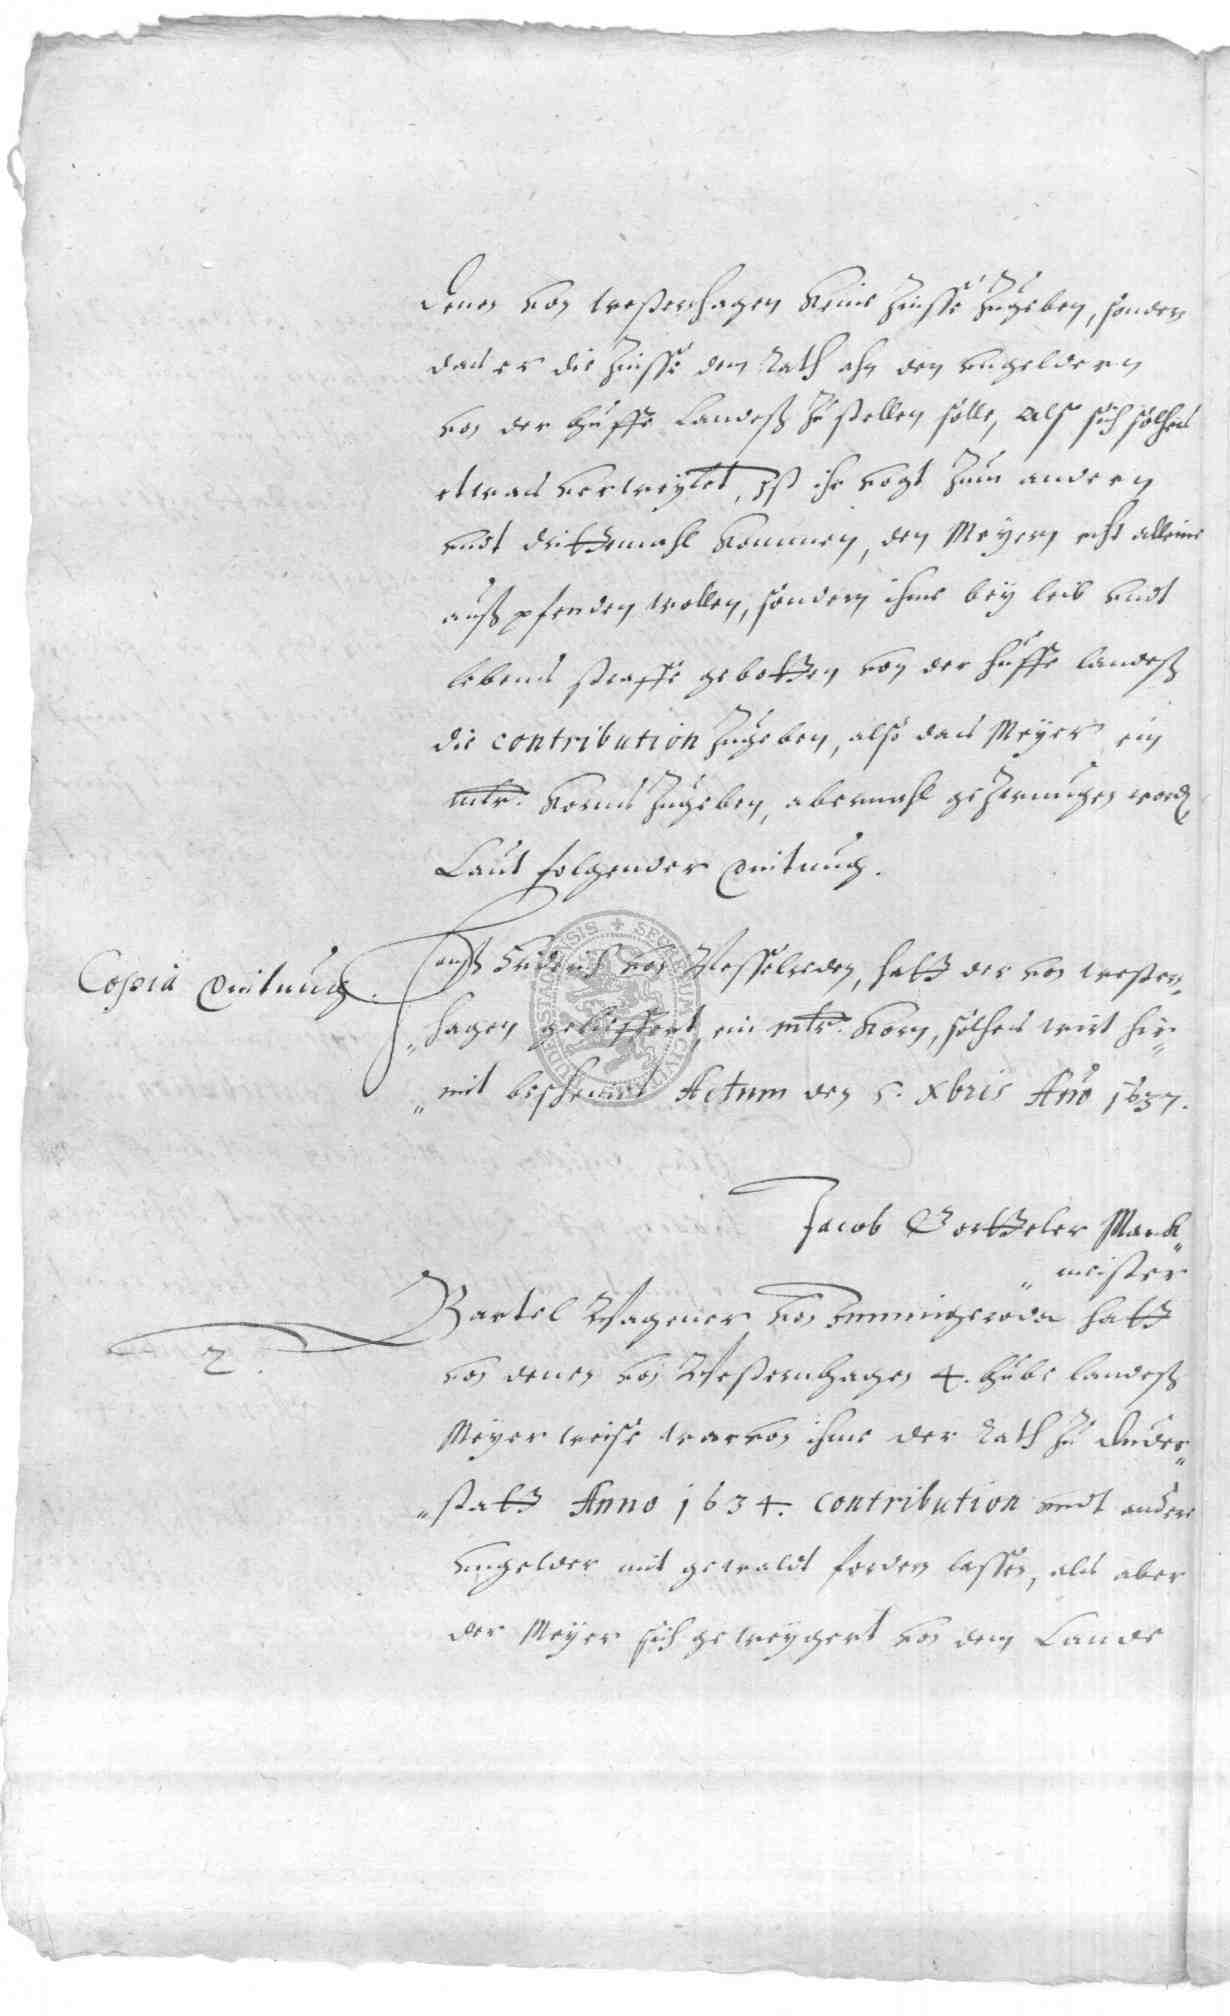 denen von westernhagen keine Zinsse Zugeben, sondern
das er die Zinsse dem Rath ahn den ungeldern
von der huffe Landeß Zu stellen solle, Alß sich solches
etwas verweylet, Ist ihr vogt Zum andern
undt drittenmahl kommen, den Meyern nicht alleine
auß pfenden wollen, sondern ihme bey leib undt
lebens straffe gebotten von der huffe landeß
die contribution Zugeben, also das Meyer ein
mltr. korns Zugeben, abermahl gezwungen word
Laut folgender Quitung.
Copia Quitung.
Hanß Friderich von Wesselreden, hatt der von western„
„hagen geliffert, ein mltr. korn, solches wirt hir„
„mit bescheinet Actum den 5. Xbris Ano 1637.
Jacob Goetzeler Marck„
„meister
2.
Bartel Wagener von Immingeroda hatt
von denen von Westernhagen 4. hube landeß
Meyer weise warvon ihme der Rath Zu Duder„
„statt Anno 1634. contribution undt andere
ungelder mit gewaldt fordern lassen, als aber
der Meyer sich geweygert von dem Lande
SECRETUM CIVIUM DUDERSTADENSIS